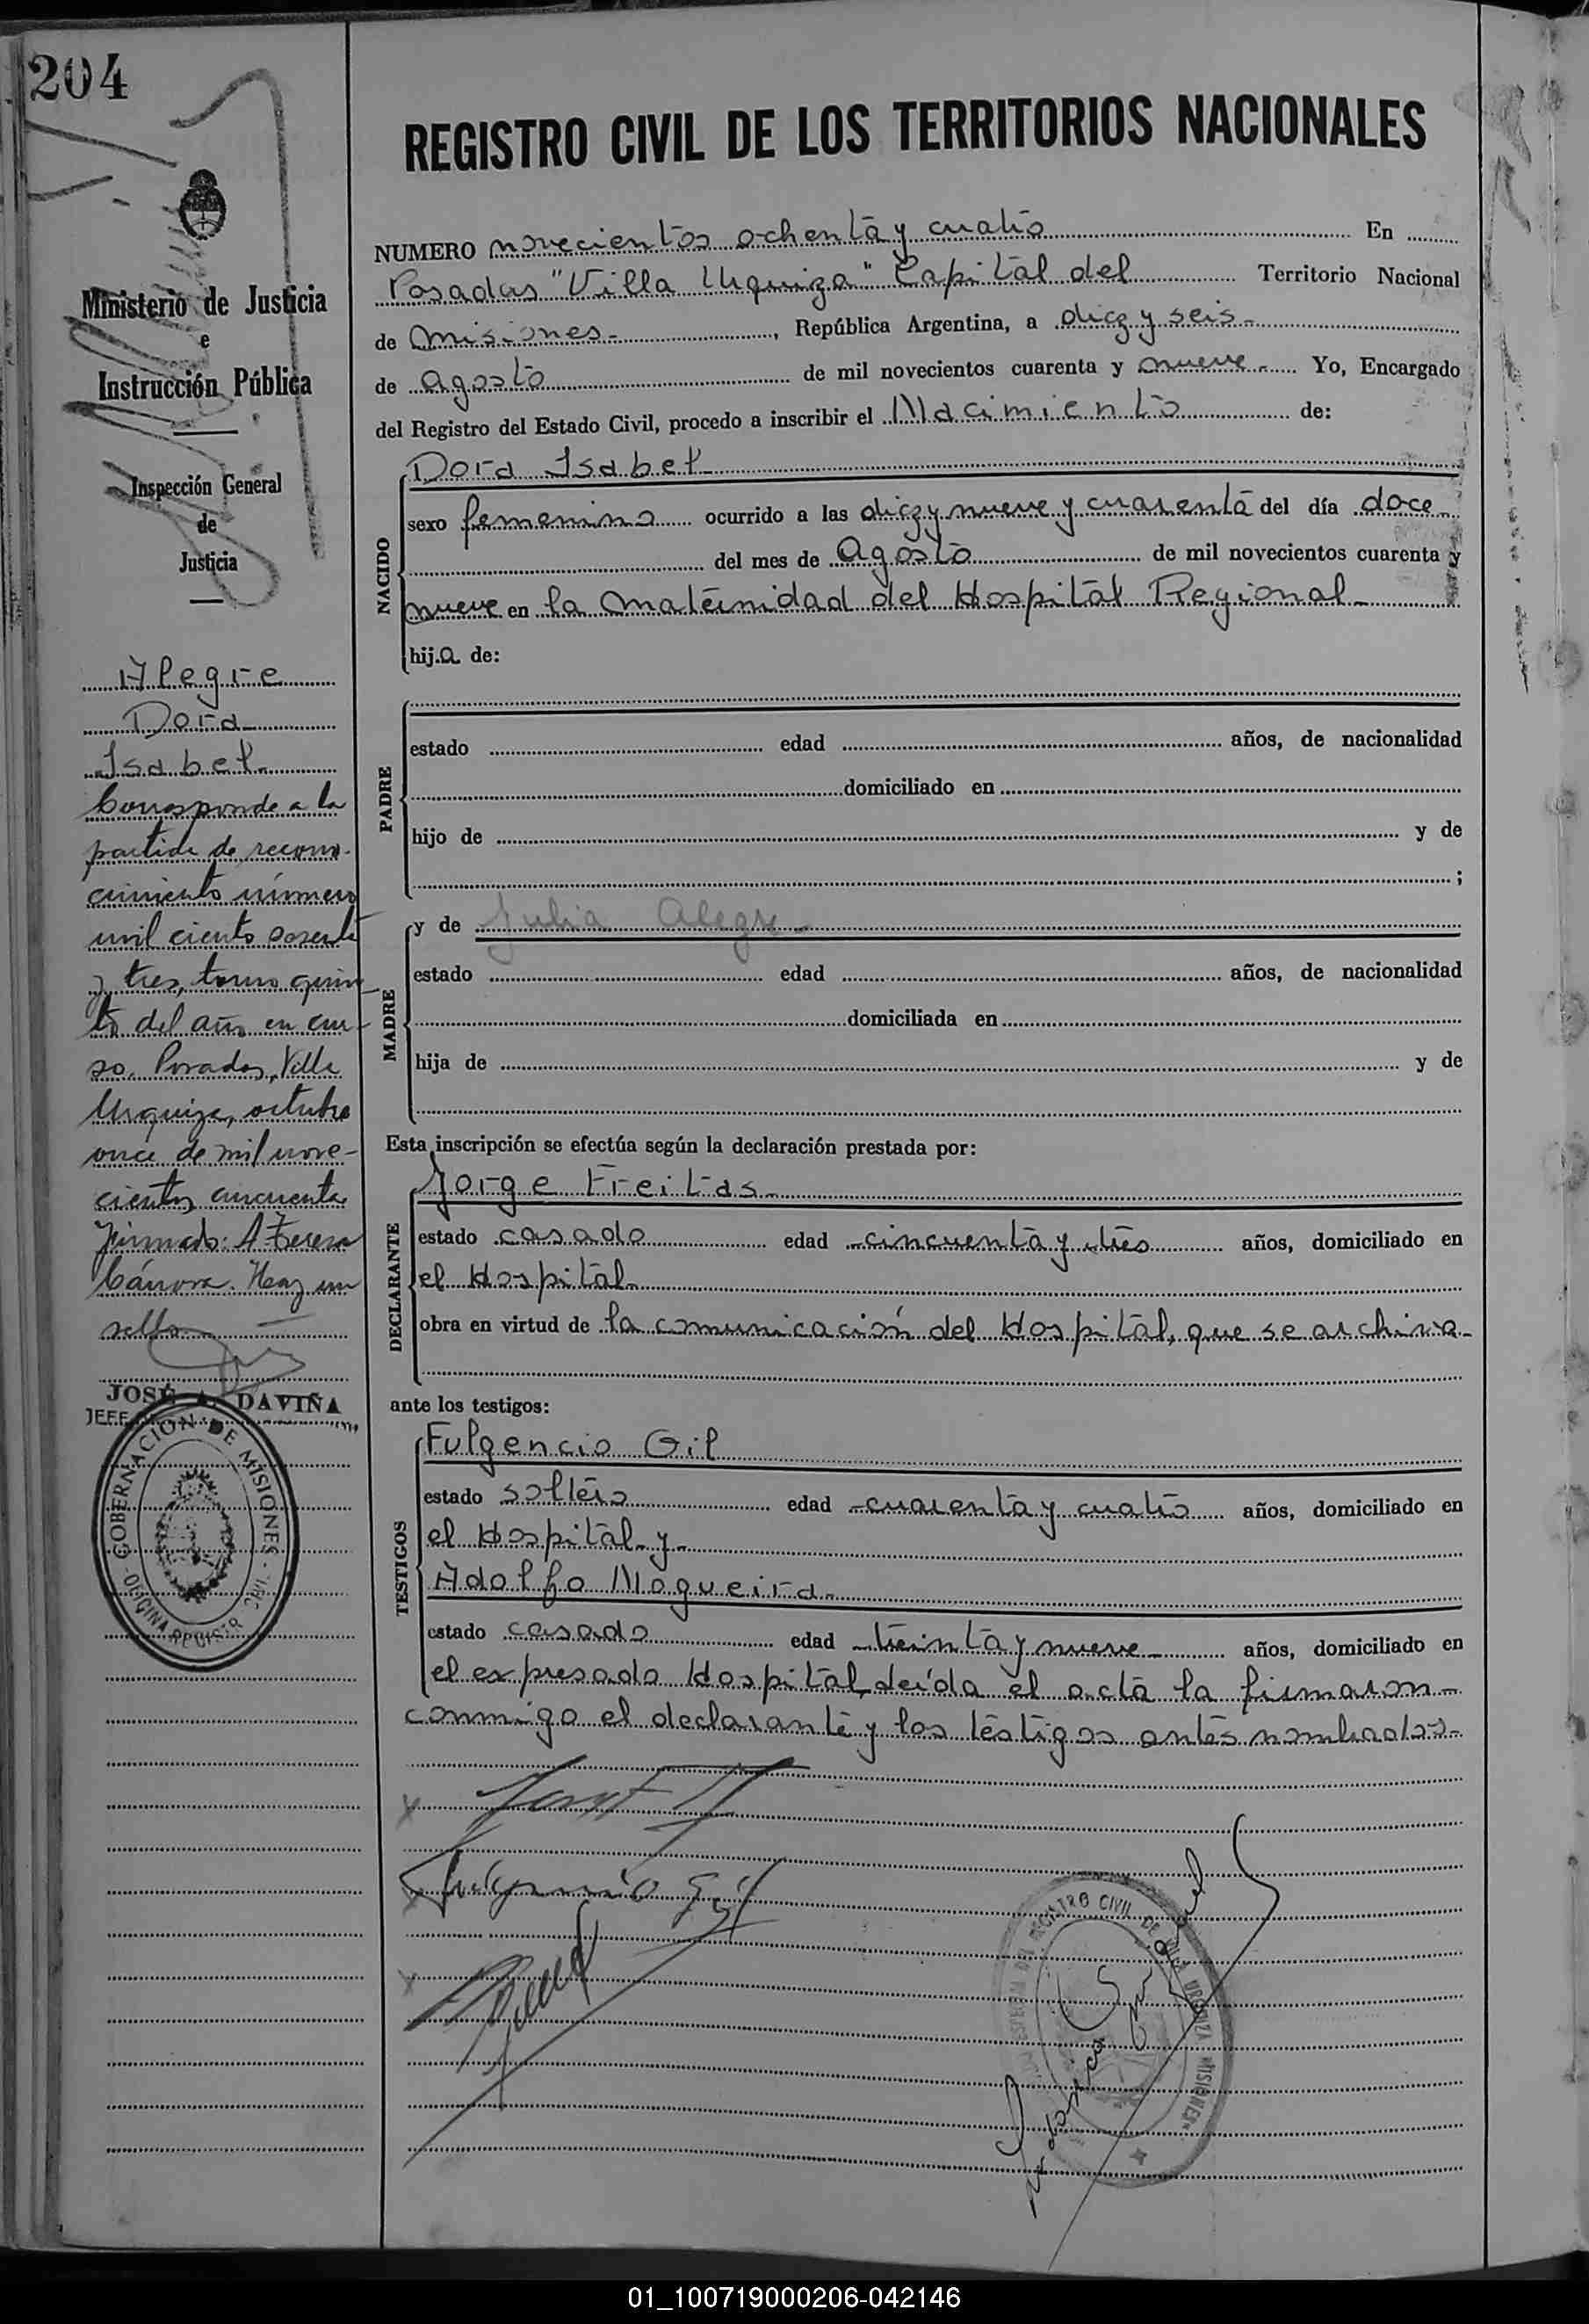 204
Ministerio de Justicia
e
Instrucción Pública
Inspección General
de
Justicia
Alegre
Dora
Isabel.
Corresponde a la
partida de recono-
cimiento número
mil ciento sesenta
y tres, tomo quin-
to del año en cur-
so. Posadas, Villa
Urquiza, octubre
once de mil nove-
cientos cincuenta
Firmado: A Teresa
Cánova. Hay un
sello
JOSÉ A. DAVIÑA
JEFE
GOBERNACION DE MISIONES
OFICINA REGISTR
REGISTRO CIVIL DE LOS TERRITORIOS NACIONALES
NUMERO novecientos ochenta y cuatro En
Posadas "Villa Urquiza" Capital del Territorio Nacional
de Misiones-, República Argentina, a diez y seis-
de Agosto de mil novecientos cuarenta y nueve-. Yo, Encargado
del Registro del Estado Civil, procedo a inscribir el Nacimiento de:
Dora Isabel
NACIDO
sexo femenino ocurrido a las diez y nueve y cuarenta del día doce-
del mes de Agosto de mil novecientos cuarenta y
nueve en la Maternidad del Hospital Regional-
hij.a de:
PADRE
estado edad años, de nacionalidad
domiciliado en
hijo de y de
;
MADRE
y de Julia Alegre-
estado edad años, de nacionalidad
domiciliada en
hija de y de
Esta inscripción se efectúa según la declaración prestada por:
Jorge Freitas-
DECLARANTE
estado casado edad -cincuenta y tres años, domiciliado en
el Hospital-
obra en virtud de la comunicación del Hospital, que se archiva-
ante los testigos:
Fulgencio Gil
TESTIGOS
estado soltero edad -cuarenta y cuatro años, domiciliado en
el Hospital y-
Adolfo Nogueira-
estado casado edad -treinta y nueve- años, domiciliado en
el expresado Hospital, Leída el acta la firmaron-
conmigo el declarante y los testigos antes nombrados-
Fulgencio Gil
REGISTRO CIVIL DE VILLA URQUIZA MISIONES
01_100719000206-042146